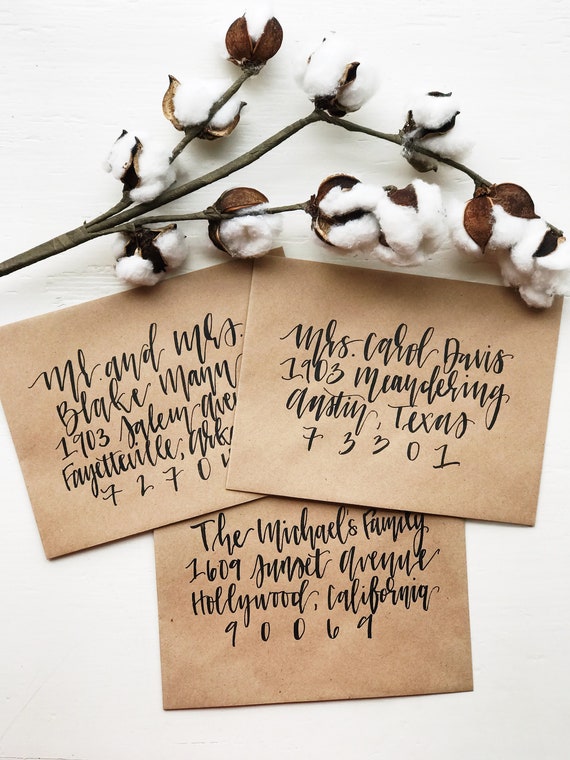 Mr. and Mrs.
Blake Mann
1903 Salem
Fayetteville,
7 2 7 0
Mrs. Carol Davis
1903 Meandering
Austin, Texas
7 3 3 0 1
The Michael's Family
1609 Sunset Avenue
Hollywood, California
9 0 0 6 9